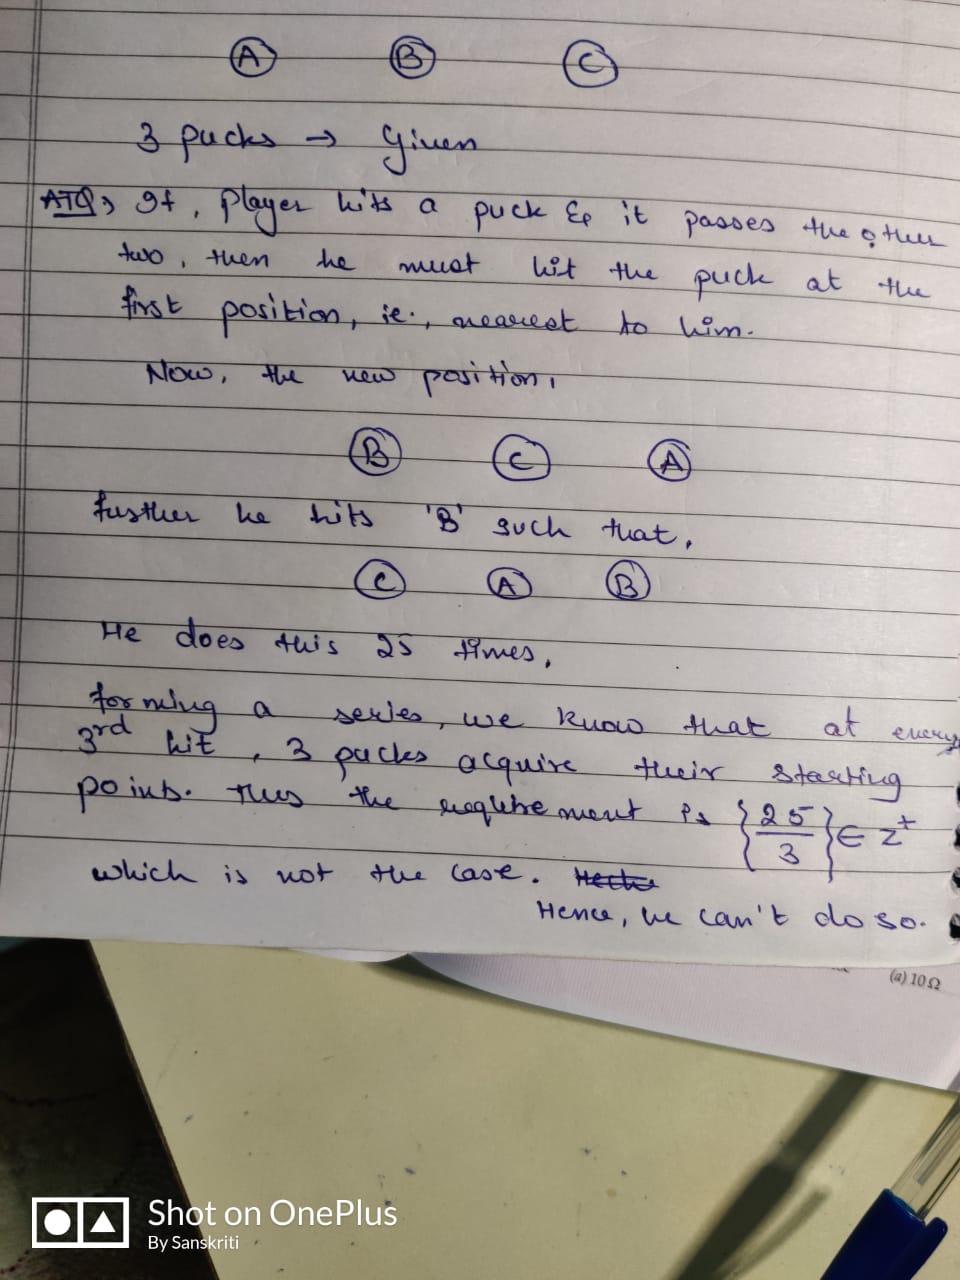 A B C
3 pucks → Given
ATQ, If, Player hits a puck & it passes the other
two, then he must hit the puck at the
first position, ie., nearest to him.
Now, the new position,
B C A
further he hits 'B' such that,
C A B
He does this 25 times,
forming a series, we know that at every
3rd hit, 3 pucks acquire their starting
points. Thus the requirement is {25/3} ∈ Z⁺
which is not the case.
Hence, he can't do so.
(a) 10 Ω
Shot on OnePlus
By Sanskriti